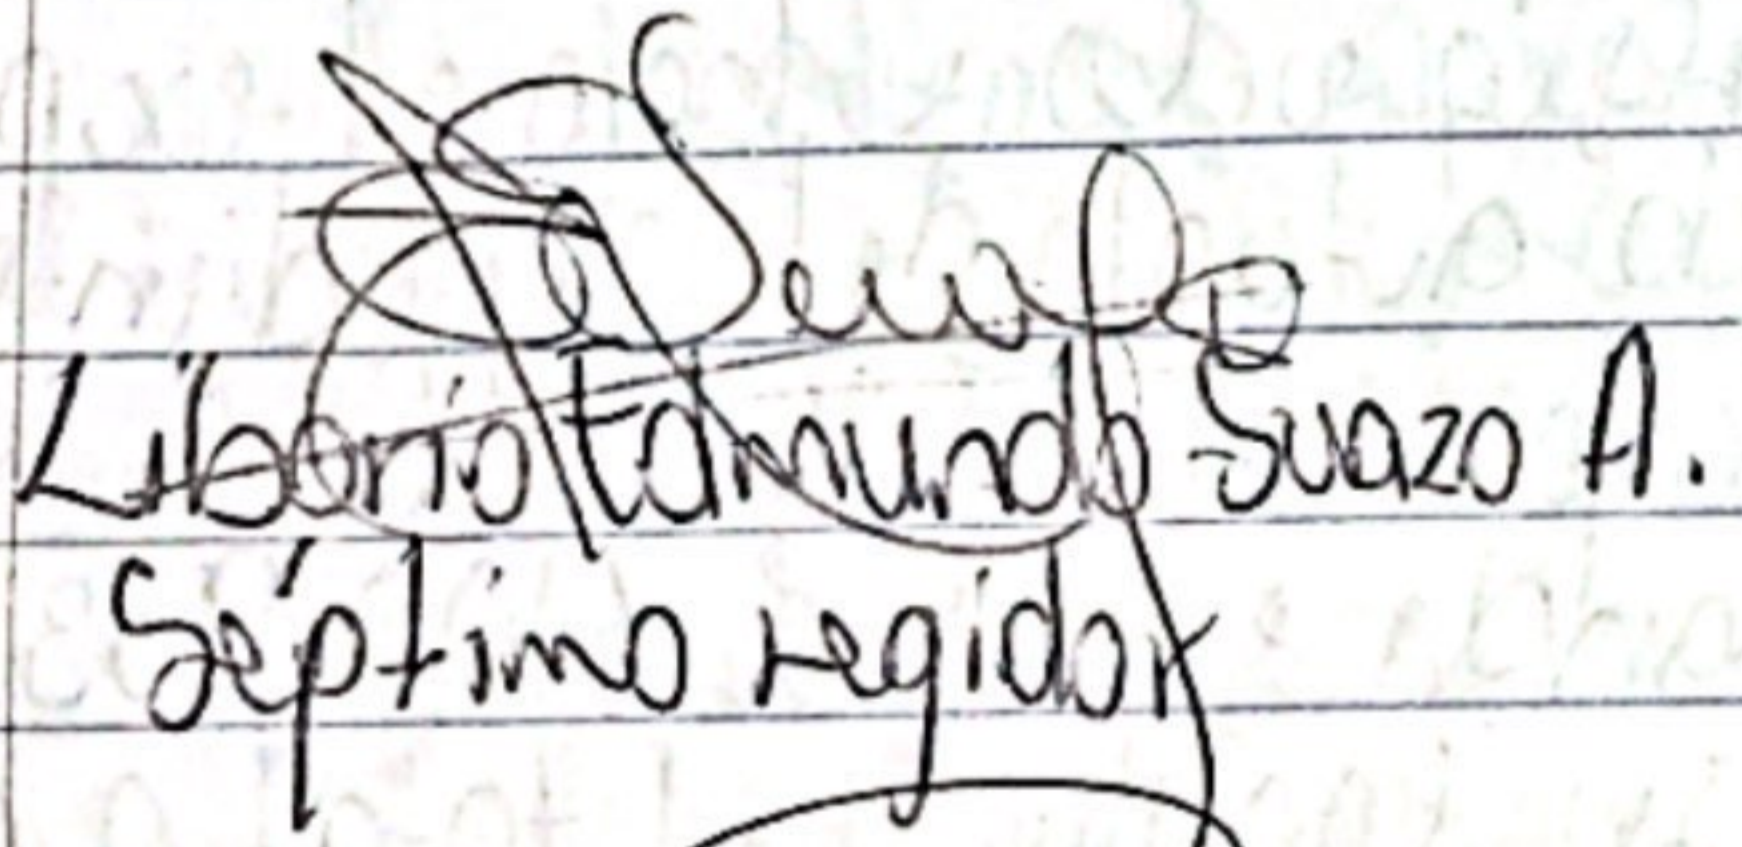 Liborio Edmundo Suazo A.
Séptimo regidor